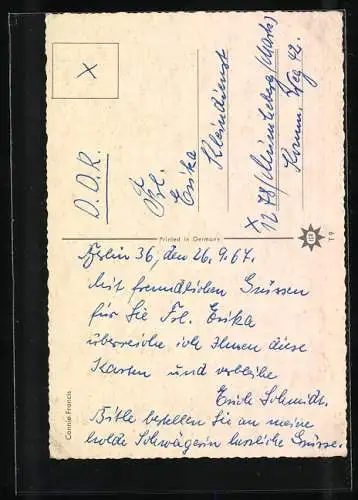 X
D.D.R.
Frl.
Erika
Kleindienst
X
1278 / Müncheberg / (Mark)
Komm. Weg 42.
Printed in Germany
T 9
Connie Francis
Berlin 36, den 26.9.67.
Mit freundlichen Grüssen
für Sie Frl. Erika
überreiche ich Ihnen diese
Karten und verbleibe
Erich Schmidt.
Bitte bestellen Sie an meine
holde Schwägerin herzliche Grüsse.